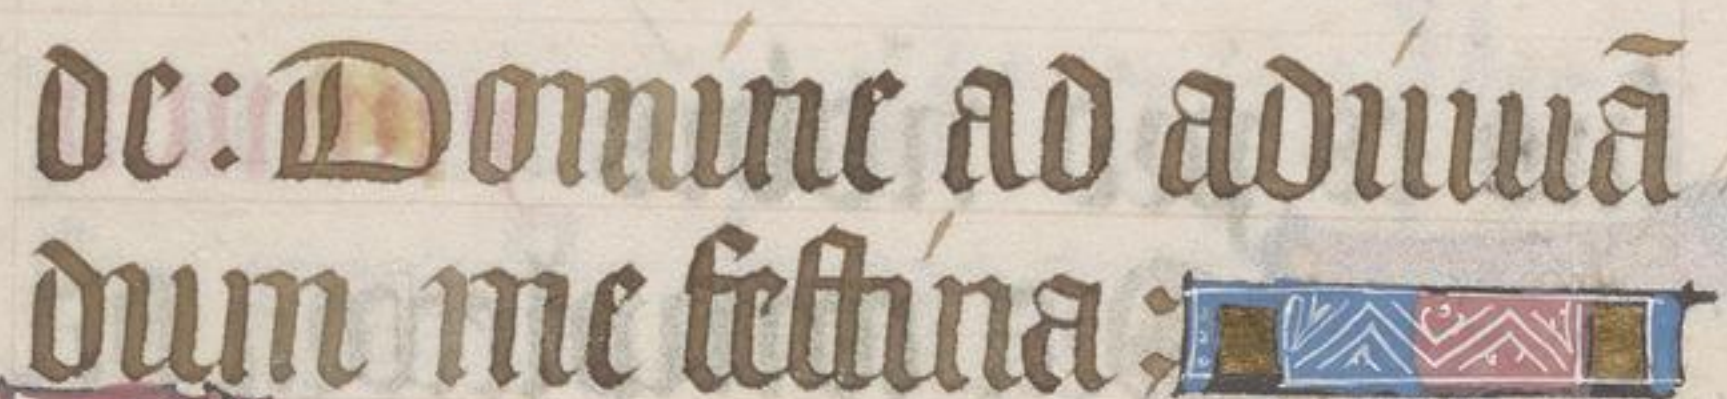 de: Domine ad adiuuā
dum me festina :